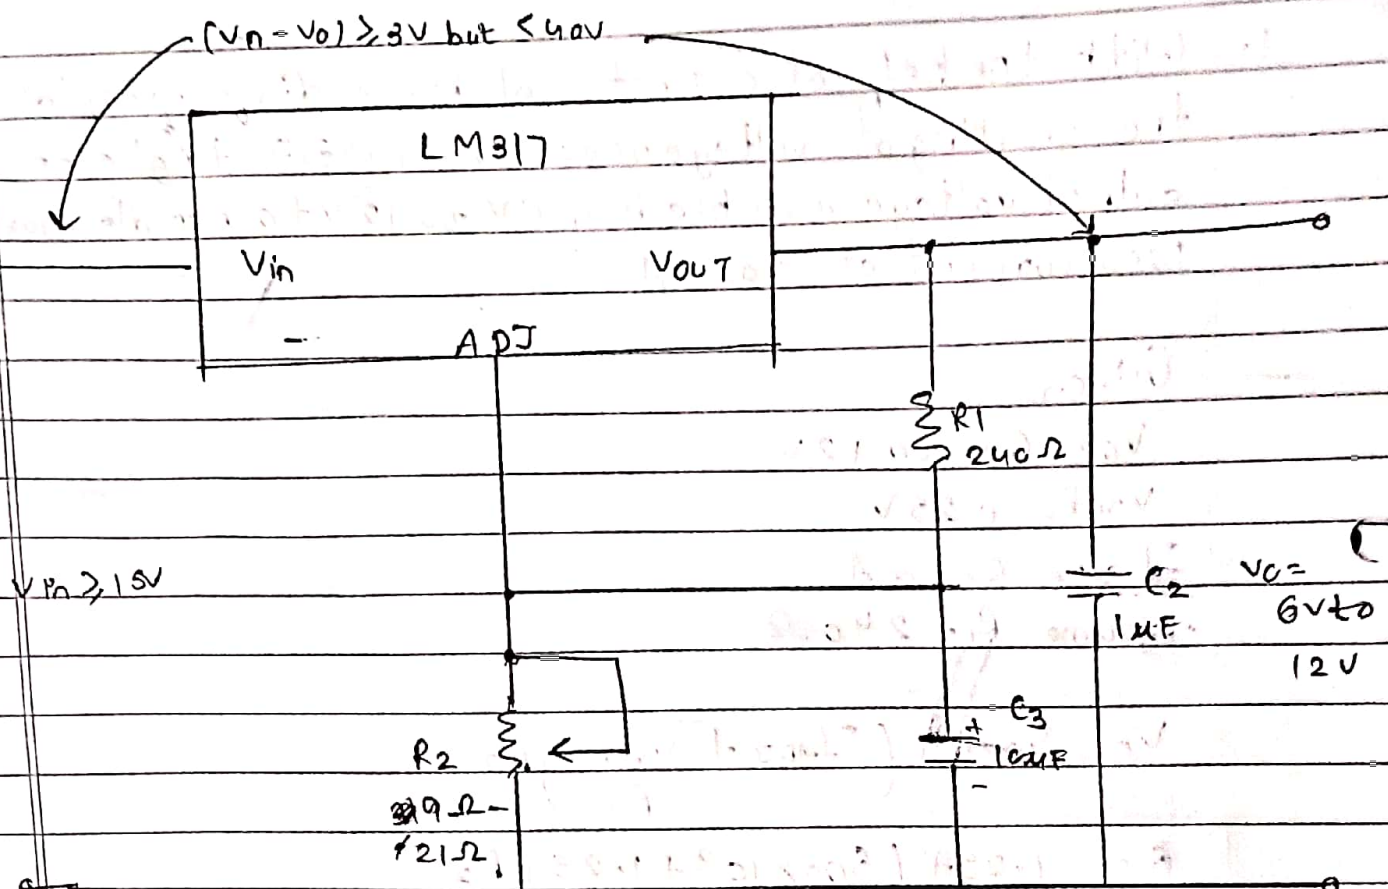 (Vn - Vo) ≥ 3V but ≤ 40V
LM317
Vin
VOUT
ADJ
R1
240Ω
Vin ≥ 15V
C2
1μF
Vo =
6V to
12V
C3
+
10μF
-
R2
9Ω -
21Ω